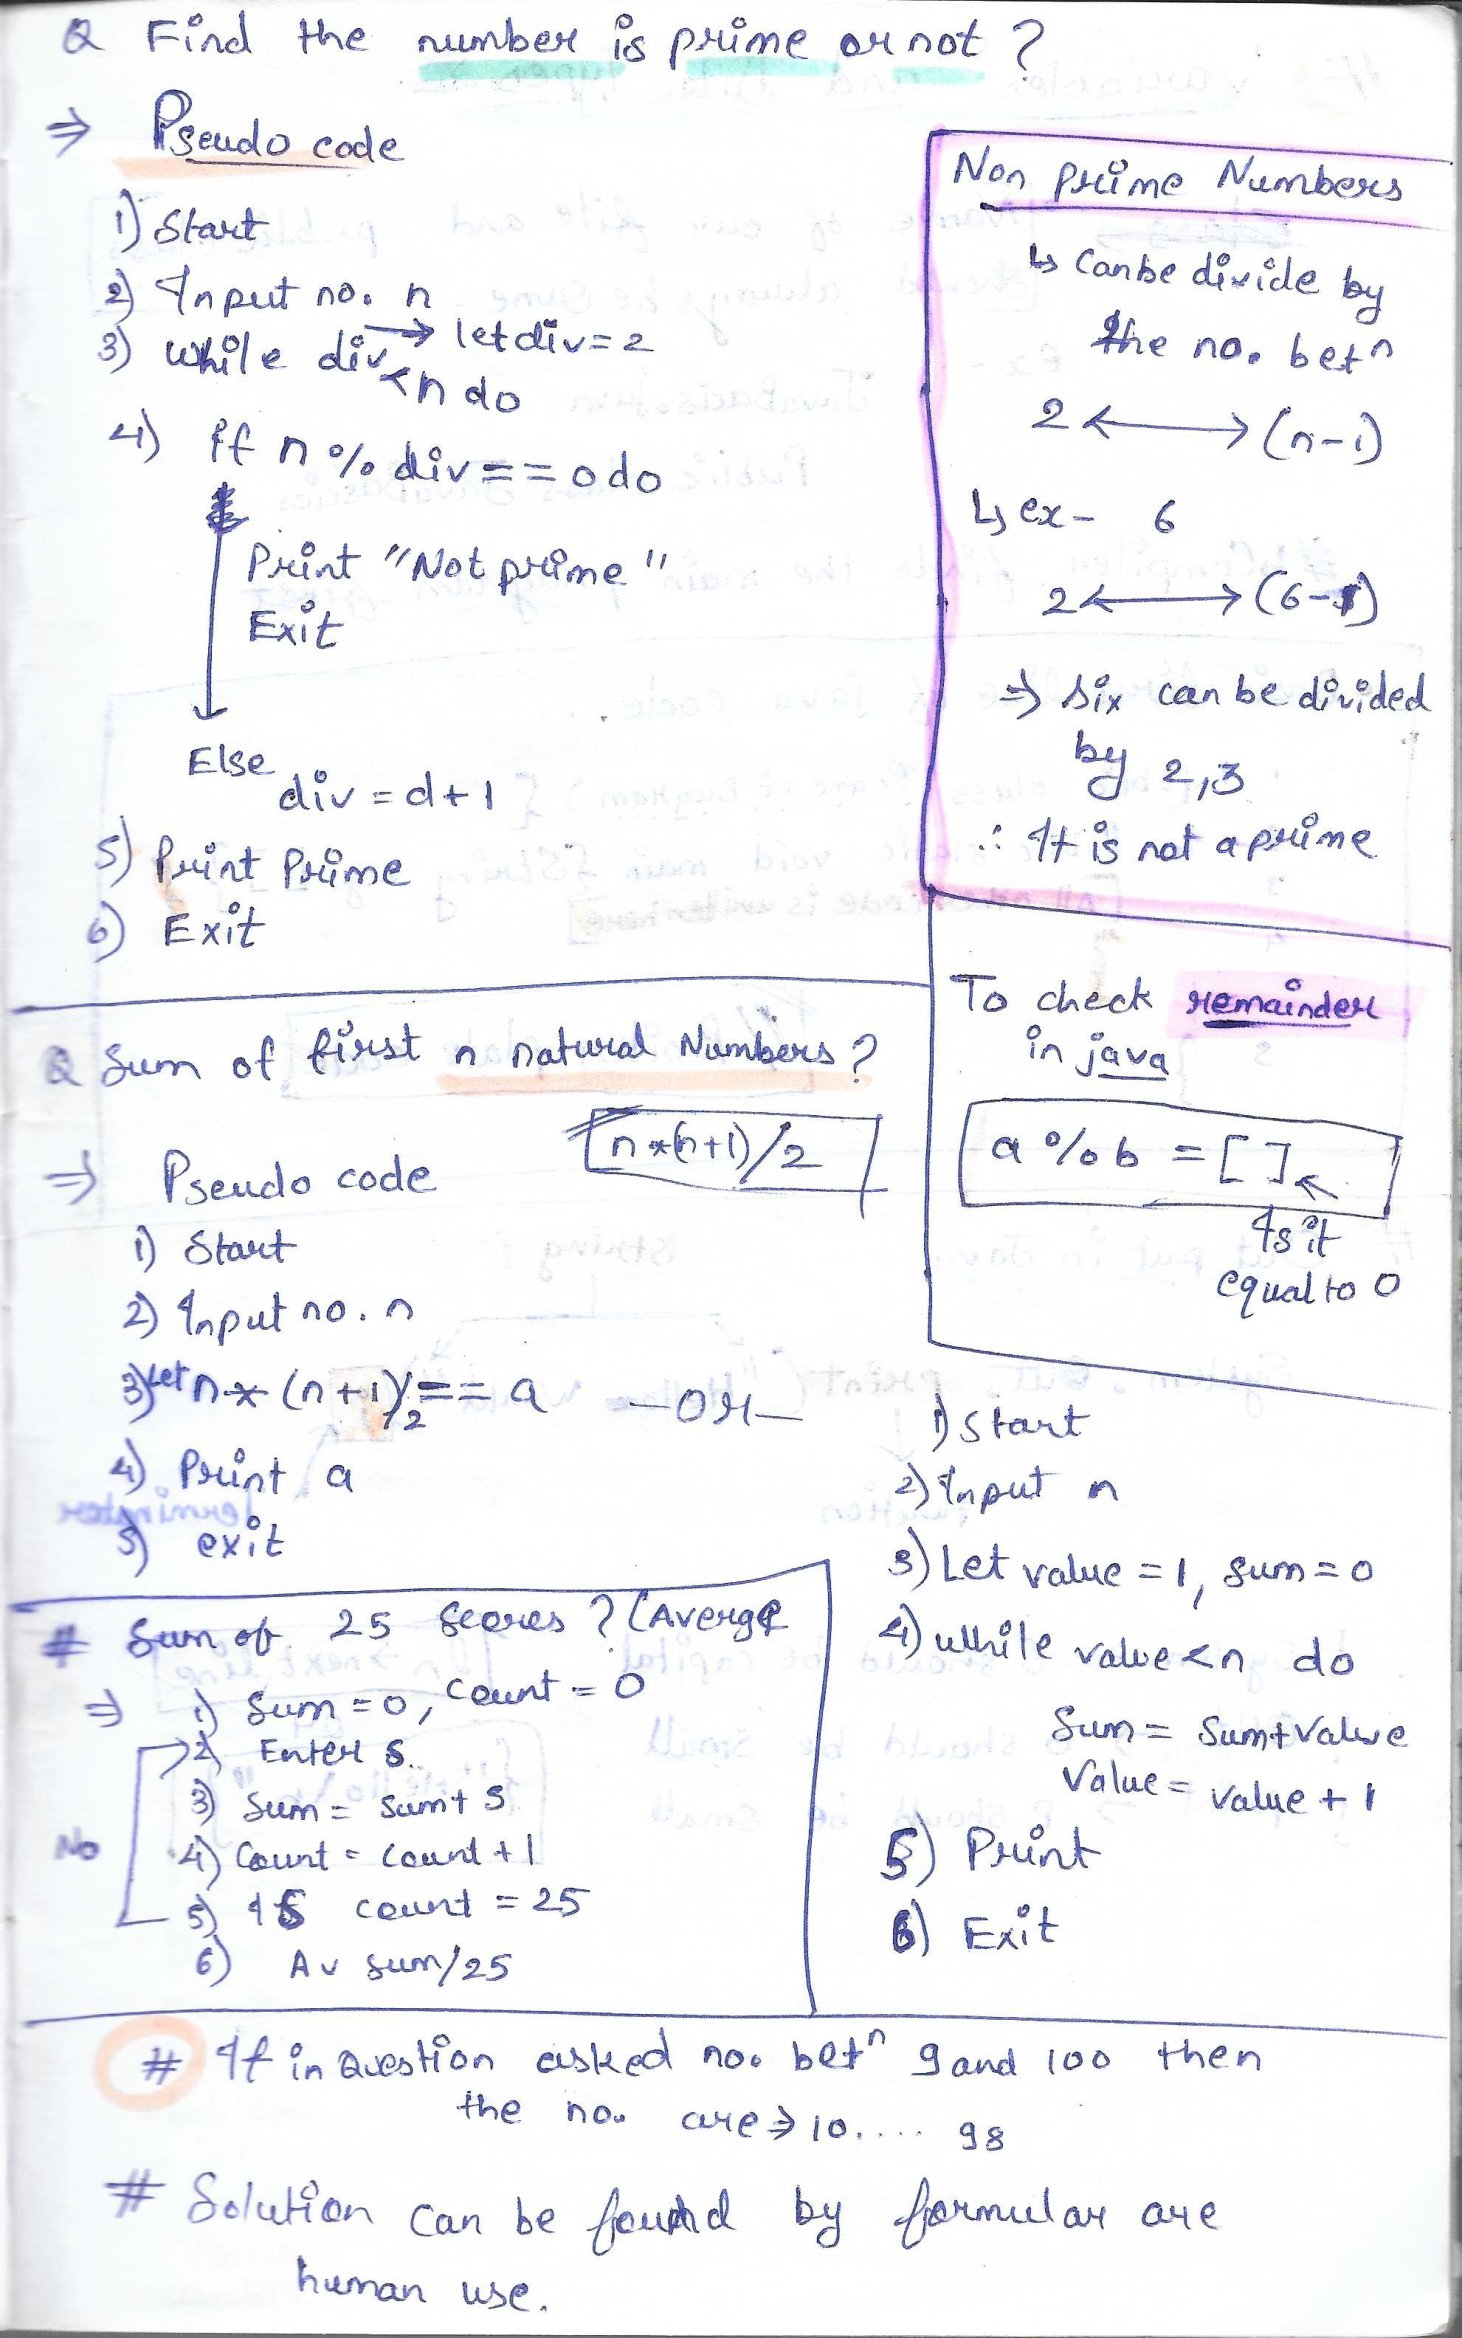 Q Find the number is prime or not ?
⇒ Pseudo code
1) Start
2) Input no. n
3) While div → let div = 2
<n do
4) if n % div == 0 do
Print "Not prime"
Exit
Else
div = d+1
5) Print Prime
6) Exit
Non prime Numbers
↳ Can be divide by
the no. betⁿ
2 ⟷ (n-1)
↳ ex- 6
2 ⟷ (6-1)
⇒ Six can be divided
by 2,3
∴ It is not a prime
To check remainder
in java
a % b = [ ]
Is it
equal to 0
Q Sum of first n natural Numbers ?
n*(n+1)/2
⇒ Pseudo code
1) Start
2) Input no. n
3) Let n * (n+1)/2 == a
4) Print a
5) exit
-or-
1) Start
2) Input n
3) Let value = 1, sum = 0
4) While value < n do
Sum = Sum+Value
Value = value + 1
5) Print
6) Exit
# Sum of 25 Scores ? (Average
⇒ 1) Sum = 0, Count = 0
2) Enter S.
3) Sum = Sum+ S
4) Count = Count + 1
No
5) If count = 25
6) Av sum/25
# If in Question asked no. betⁿ 9 and 100 then
the no. are ⇒ 10..... 98
# Solution can be found by formular are
human use.